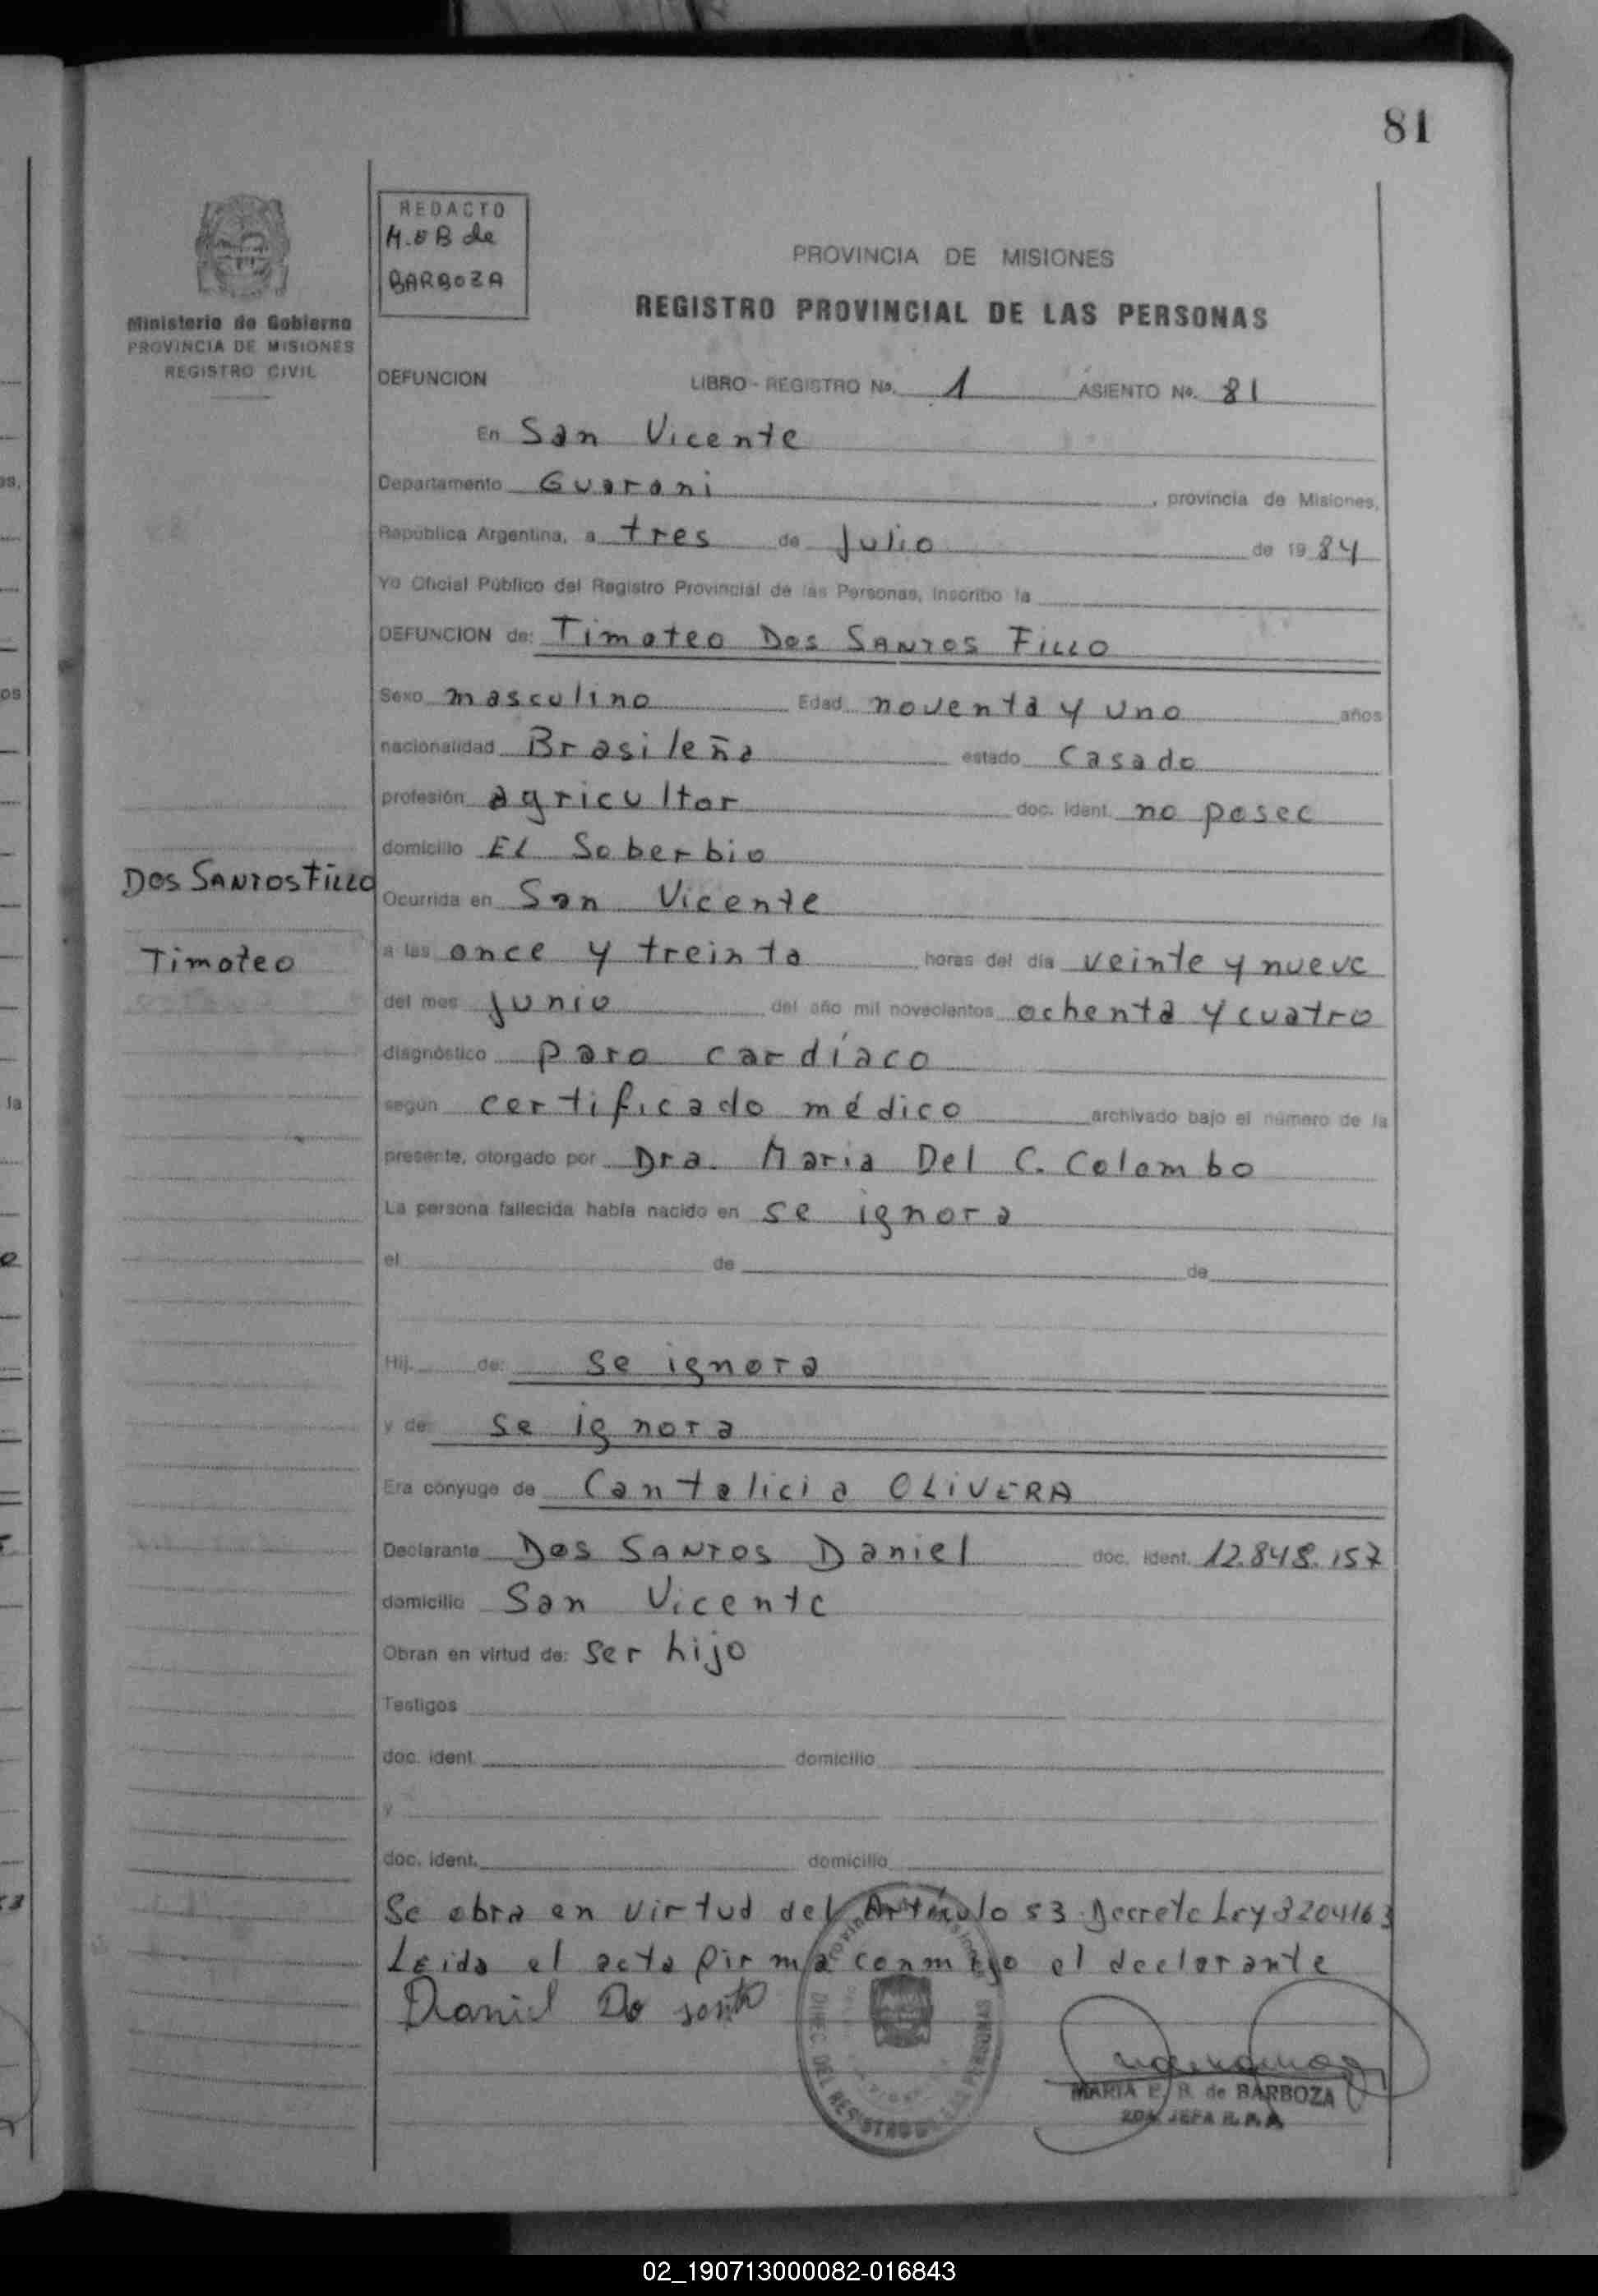 81
REDACTO
M.E B de
BARBOZA
Ministerio de Gobierno
PROVINCIA DE MISIONES
REGISTRO CIVIL
PROVINCIA DE MISIONES
REGISTRO PROVINCIAL DE LAS PERSONAS
DEFUNCION LIBRO - REGISTRO No. 1 ASIENTO No. 81
En San Vicente
Departamento Guarani, provincia de Misiones,
República Argentina, a tres de Julio de 1984
Yo Oficial Público del Registro Provincial de las Personas, inscribo la
DEFUNCION de: Timoteo Dos SANTOS FILLO
Sexo masculino Edad noventa y uno años
nacionalidad Brasileña estado Casado
profesión agricultor doc. ident. no posee
domicilio EL Soberbio
Dos SANTOS FILLO
Ocurrida en San Vicente
Timoteo
a las once y treinta horas del día veinte y nueve
del mes junio del año mil novecientos ochenta y cuatro
diagnóstico paro cardíaco
según certificado médico archivado bajo el número de la
presente, otorgado por Dra. Maria Del C. Colombo
La persona fallecida había nacido en se ignora
el de de
Hij de: se ignora
y de se ignora
Era cónyuge de Cantalicia OLIVERA
Declarante Dos SANTOS Daniel doc. ident. 12.848.157
domicilio San Vicente
Obran en virtud de: ser hijo
Testigos
doc. ident. domicilio
y
doc. ident. domicilio
Se obra en virtud del Artículo 53 Decreto Ley 3204163
Leida el acta firma conmigo el declarante
Daniel Do
MARIA E. B. de BARBOZA
2DA. JEFA R.P.P.
02_190713000082-016843